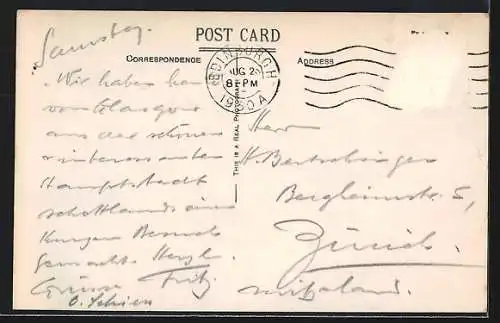 POST CARD
CORRESPONDENCE
ADDRESS
EDINBURGH
AUG 2
8-PM
1930 A
THIS IS A REAL PHOTOGRAPH
Samstag.
Wir haben
von Glasgow
aus der schönen
interessanten
Hauptstadt
Schottlands einen
kurzen Besuch
gemacht. Herzl.
Grüsse Fritz
Herrn
H. Bertschinger
Bergheimstr. 5,
Zürich.
Switzerland.